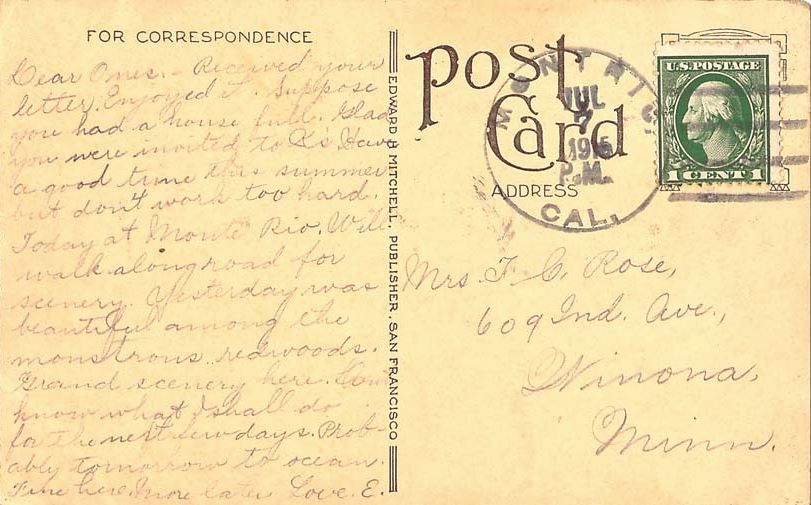 FOR CORRESPONDENCE
Dear Ones. - Received your
letter. Enjoyed it. Suppose
you had a house full. Glad
you were invited to K's. Have
a good time this summer
but don't work too hard.
Today at Monte Rio. Will
walk along road for
scenery. Yesterday was
beautiful among the
monstrous redwoods.
Grand scenery here. Don't
know what I shall do
for the next few days. Prob-
ably tomorrow to ocean.
Fine here. More later Love. E.
EDWARD H. MITCHELL, PUBLISHER, SAN FRANCISCO
post
Card
ADDRESS
JUL
7
1915
P.M.
CAL.
U.S. POSTAGE
1 CENT 1
Mrs. F. C. Rose,
609 Ind. Ave.,
Winona,
Minn.